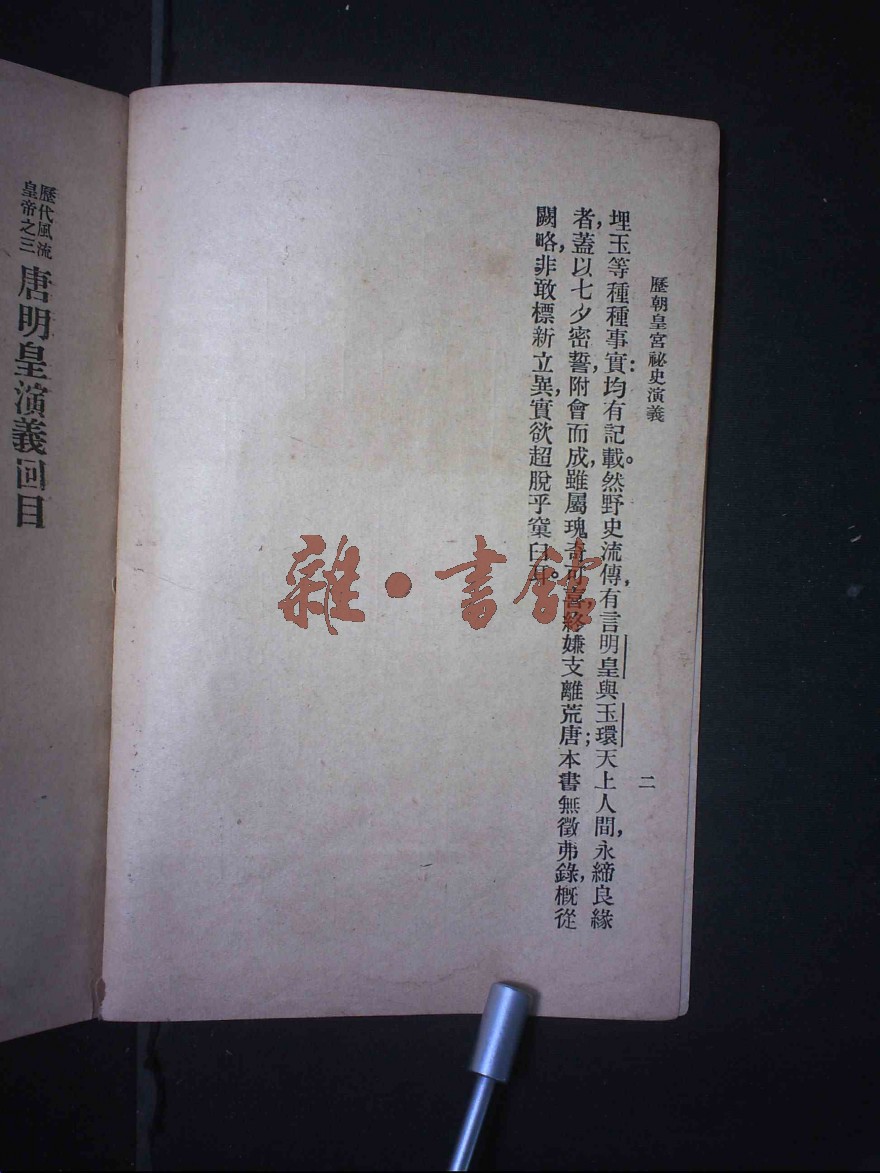 歷朝皇宮祕史演義
二
埋玉等種種事實:均有記載。然野史流傳,有言明皇與玉環天上人間,永締良緣
者,蓋以七夕密誓,附會而成,雖屬瑰奇可喜,終嫌支離荒唐;本書無徵弗錄,概從
闕略,非敢標新立異,實欲超脫乎窠臼耳。
歷代風流
皇帝之三
唐明皇演義回目
雜·書館